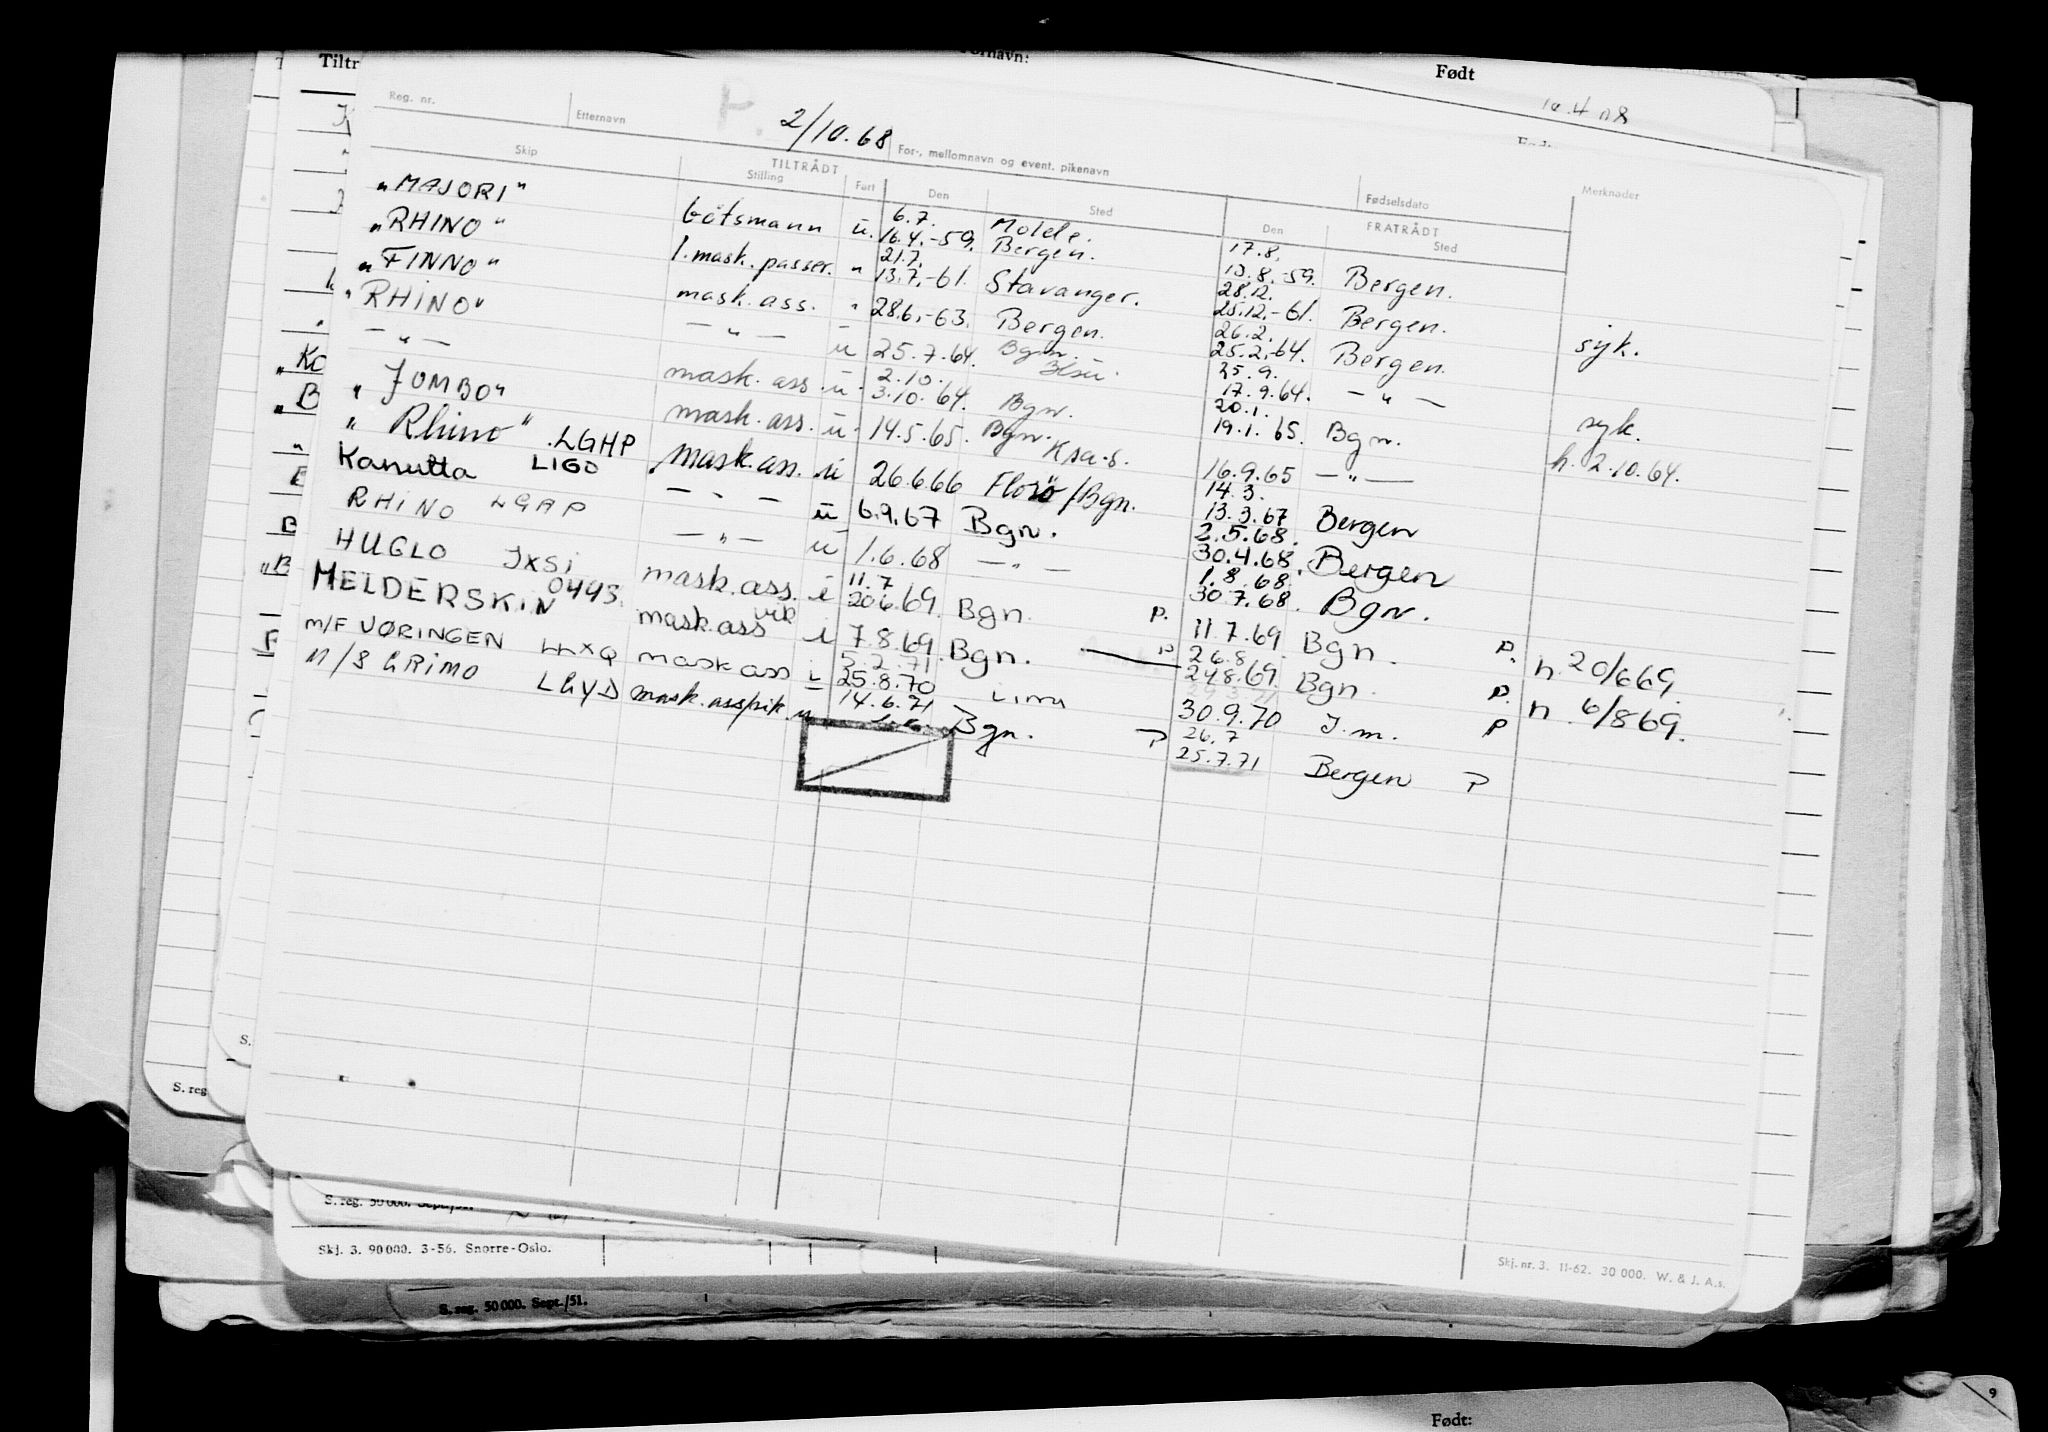 Tiltr
Fornavn:
Født
10.4.08
Reg. nr.
Etternavn
2/10.68
For-, mellomnavn og event. pikenavn
Fødselsdato
Merknader
Skip
TILTRÅDT
Stilling
Fart
Den
Sted
FRATRÅDT
Den
Sted
„MAJORI" båtsmann u. 6.7. 16.4.-59. Molde. Bergen. 17.8. 13.8.-59. Bergen.
„RHINO" 1. mask. passer. " 21.7. 13.7.-61. Stavanger. 28.12. 25.12.-61. Bergen. syk.
„FINNO" mask. ass. " 28.6.-63. Bergen. 26.2. 25.2.-64. Bergen.
"RHINO" — „ — u 25.7.64. Bgn. 25.9. 17.9.64. — „ — syk.
— „ — mask. ass. u. 2.10. 3.10.64. Bgn. 20.1. 19.1.65. Bgn. h. 2.10.64.
„JUMBO" mask. ass. u. 14.5.65. Bgn. 16.9.65 — „ —
„Rhino" LGHP mask. ass. u 26.6.66 Florø/Bgn. 14.3. 13.3.67 Bergen
Kanutta LIGO — „ — u 6.9.67 Bgn. 2.5.68. 30.4.68. Bergen
RHINO — „ — u 1.6.68 — „ — 1.8.68. 30.7.68. Bgn.
HUGLO JXSI mask. ass. i 11.7 20.6.69. Bgn. P. 11.7.69. Bgn. P. n. 20/669.
MELDERSKIN 0443. mask. ass vik i 7.8.69. Bgn. P. 26.8. 24.8.69. Bgn. P. n. 6/869.
M/F VØRINGEN mask ass i 5.2.71 25.8.70 30.9.70 J.m. P
M/S GRIMO LGYD mask. ass/vik. u 14.6.71 Bgn. P 26.7 25.7.71 Bergen P
S. reg
S. reg. 50 000. Sept./51.
Skj. 3. 90 000. 3-56. Snorre-Oslo.
Skj. nr. 3. 11-62. 30 000. W. & J. A.s.
S. reg. 50 000. Sept./51.
9
Født: